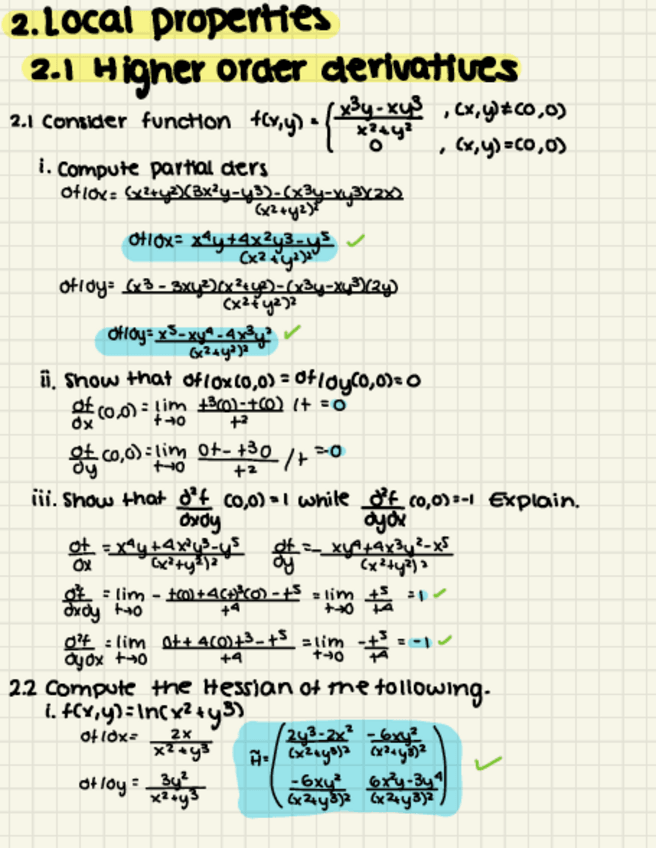 2. Local properties
2.1 Higher order derivatives
2.1 Consider function f(x,y) = { x³y - xy³ / x²+y² , (x,y)≠(0,0)
0 , (x,y)=(0,0)
i. Compute partial ders
∂f/∂x = (x²+y²)(3x²y-y³)-(x³y-xy³)(2x) / (x²+y²)²
∂f/∂x = x⁴y+4x²y³-y⁵ / (x²+y²)² ✓
∂f/∂y = (x³-3xy²)(x²+y²)-(x³y-xy³)(2y) / (x²+y²)²
∂f/∂y = x⁵-xy⁴-4x³y² / (x²+y²)² ✓
ii. Show that ∂f/∂x(0,0) = ∂f/∂y(0,0)=0
∂f/∂x (0,0) = lim t→0 t³(0)-t(0) / t² /t = 0
∂f/∂y (0,0) = lim t→0 0t-t³0 / t² /t = 0
iii. Show that ∂²f/∂x∂y (0,0)=1 while ∂²f/∂y∂x (0,0)=-1 Explain.
∂f/∂x = x⁴y+4x²y³-y⁵ / (x²+y²)² ∂f/∂y = - xy⁴+4x³y²-x⁵ / (x²+y²)²
∂²f/∂x∂y = lim t→0 - t(0)+4(t)³(0)-t⁵ / t⁴ = lim t→0 t⁵/t⁴ = 1 ✓
∂²f/∂y∂x = lim t→0 0t+4(0)t³-t⁵ / t⁴ = lim t→0 -t⁵/t⁴ = -1 ✓
2.2 Compute the Hessian of the following.
i. f(x,y)=ln(x²+y³)
∂f/∂x = 2x / x²+y³
∂f/∂y = 3y² / x²+y³
H̃ = ( 2y³-2x² / (x²+y³)² -6xy² / (x²+y³)²
-6xy² / (x²+y³)² 6x²y-3y⁴ / (x²+y³)² ) ✓